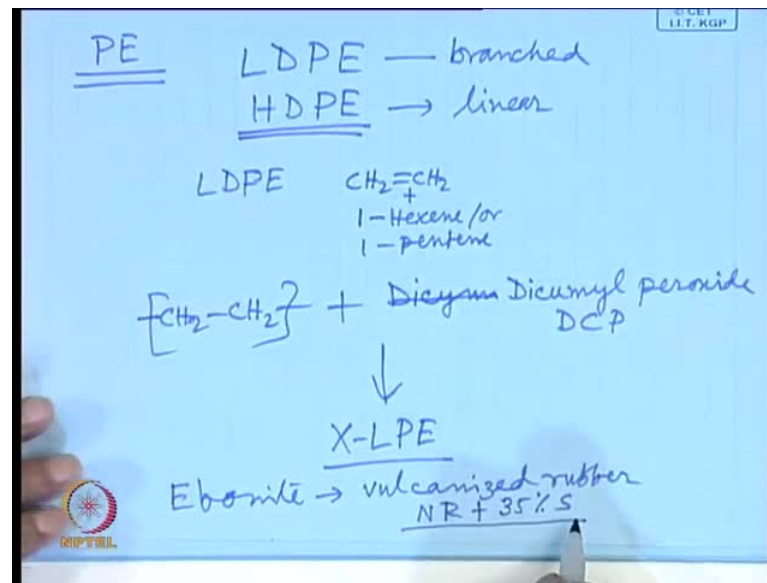 © CET
I.I.T. KGP
PE LDPE — branched
HDPE → linear
LDPE CH2=CH2
+
1-Hexene/or
1-pentene
[CH2-CH2] + Dicyum Dicumyl peroxide
DCP
↓
X-LPE
Ebonite → vulcanized rubber
NR + 35% S
NPTEL